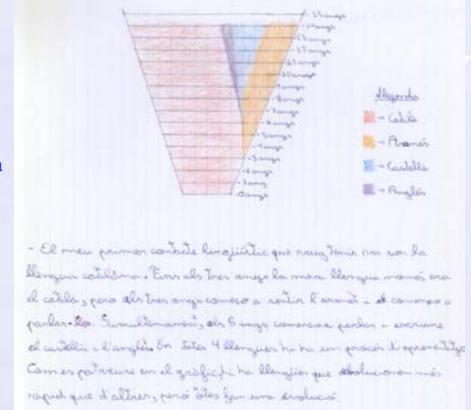 14 anys
13 anys
12 anys
11 anys
10 anys
9 anys
8 anys
7 anys
6 anys
5 anys
4 anys
3 anys
2 anys
1 any
0 anys
Llegenda
- Català
- Aranés
- Castellà
- Anglès
- El meu primer contacte lingüístic que vaig tenir va ser la
llengua catalana. Fins als tres anys la meva llengua només era
el català, pero als tres anys començo a sentir l'aranés i començo a
parlar-lo. Simultàneament, als 6 anys començo a parlar i escriure
el castellà i l'anglès. En totes 4 llengues hi ha un procés d'aprenentatge
Com es pot veure en el gràfic, hi ha llengües que evolucionen més
rapid que d'altres, però totes fan una evolució.